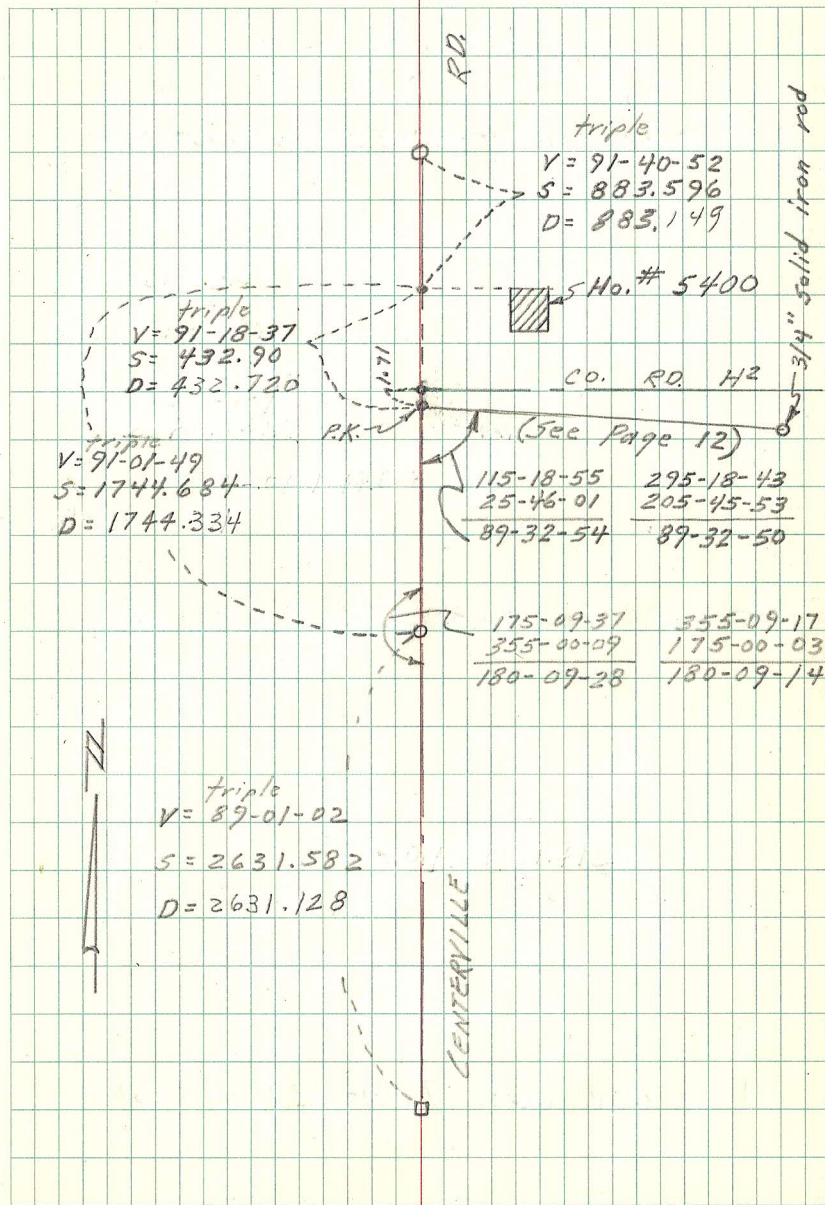 RD.
triple
V = 91-40-52
S = 883.596
D = 883.149
3/4" solid iron rod
Ho. # 5400
triple
V = 91-18-37
S = 432.90
D = 432.720
1.71
CO. RD. H2
P.K.
(See Page 12)
triple
V = 91-01-49
S = 1744.684
D = 1744.334
115-18-55 295-18-43
25-46-01 205-45-53
89-32-54 89-32-50
175-09-37 355-09-17
355-00-09 175-00-03
180-09-28 180-09-14
N
triple
V = 89-01-02
S = 2631.582
D = 2631.128
CENTERVILLE